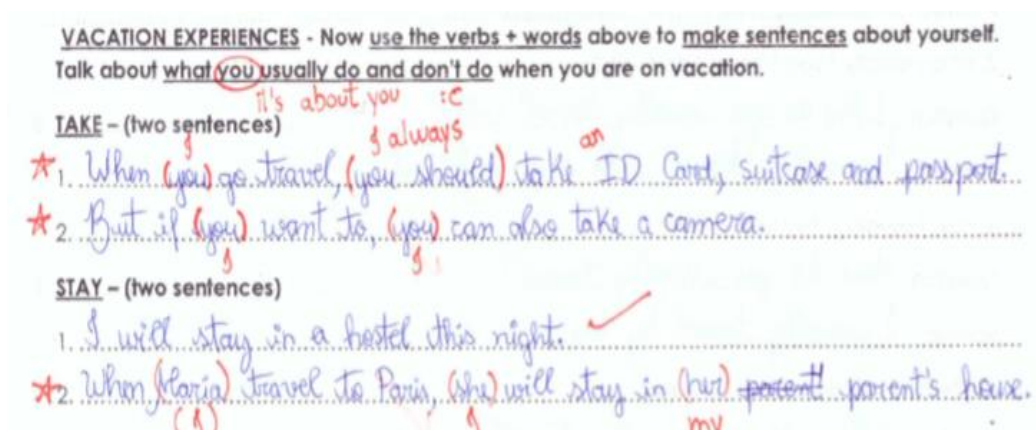 VACATION EXPERIENCES - Now use the verbs + words above to make sentences about yourself.
Talk about what you usually do and don't do when you are on vacation.
it's about you :c
TAKE – (two sentences)
I I always an
1. When (you) go travel, (you should) take ID Card, suitcase and passport.
2. But if (you) want to, (you) can also take a camera.
I I
STAY – (two sentences)
1. I will stay in a hostel this night.
2. When (Maria) travel to Paris, (she) will stay in (her) parent' parent's house.
(I) I my